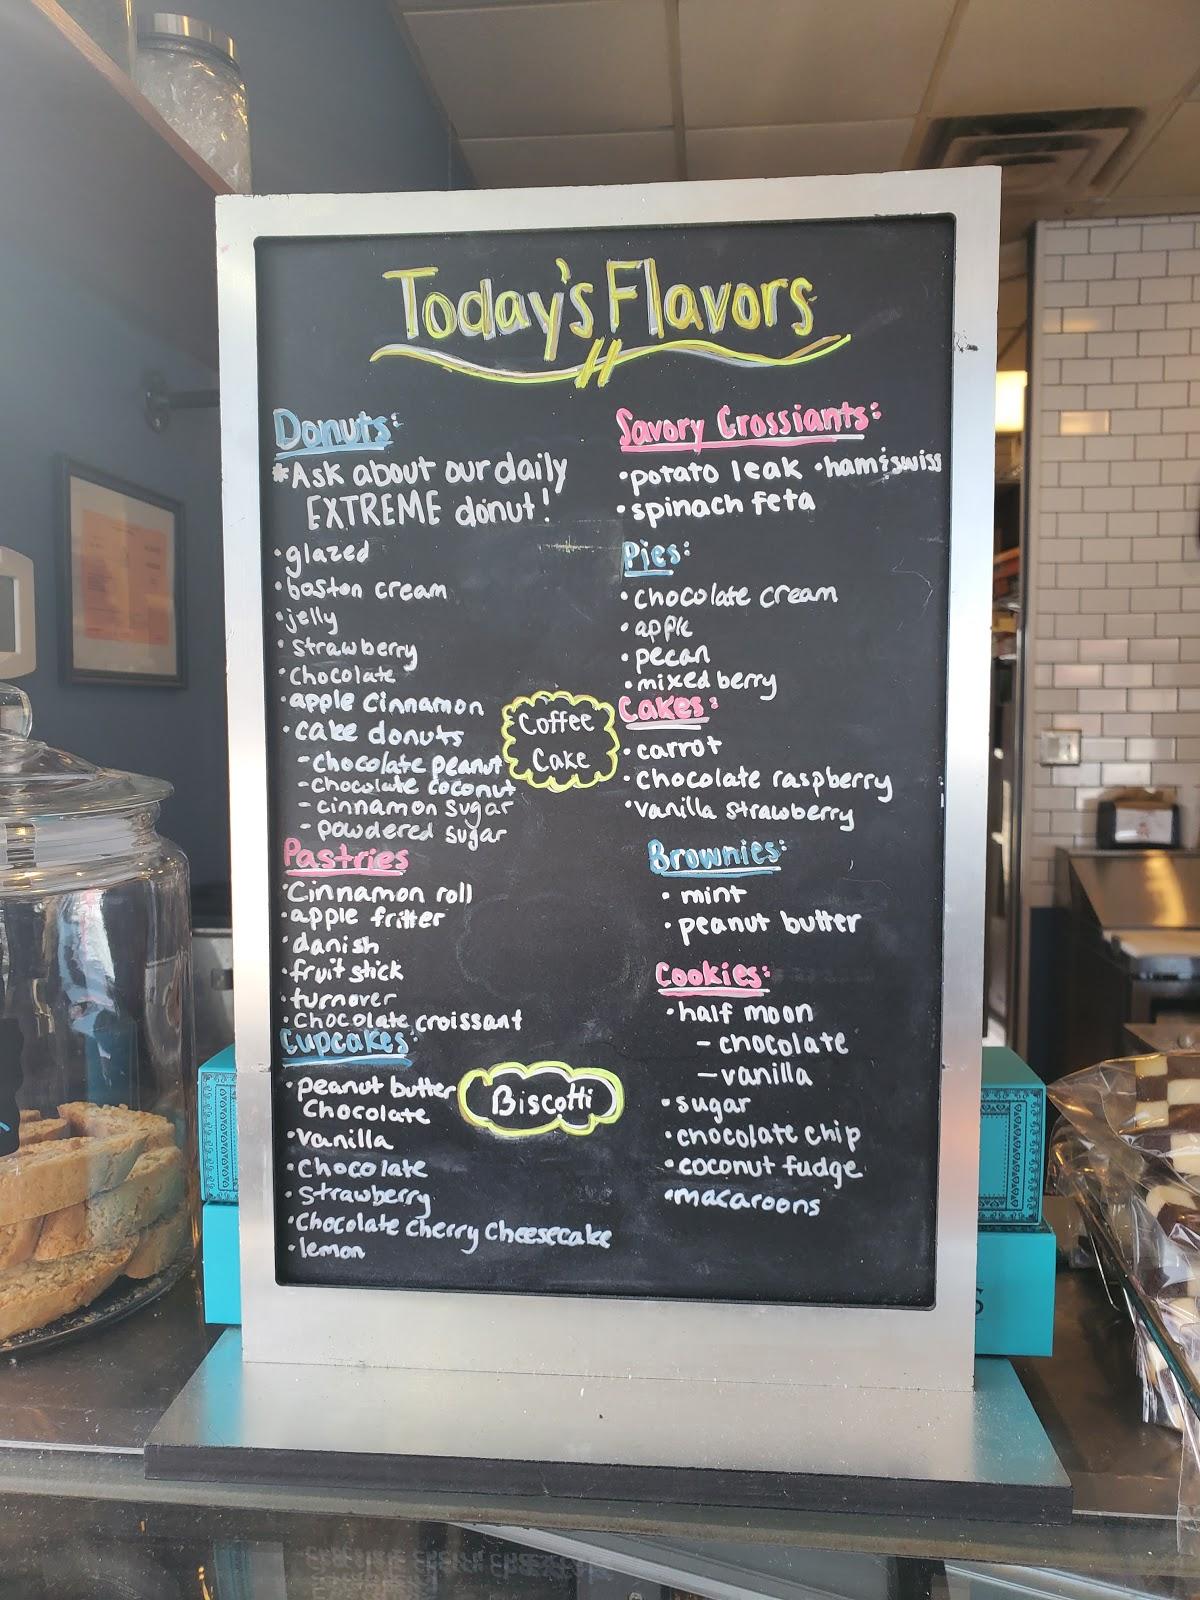 Today's Flavors
Donuts:
*Ask about our daily
EXTREME donut!
•glazed
•boston cream
•jelly
•strawberry
•chocolate
•apple cinnamon
•cake donuts
-chocolate peanut
-chocolate coconut
-cinnamon sugar
-powdered sugar
Coffee
Cake
Pastries
•Cinnamon roll
•apple fritter
•danish
•fruit stick
•turnover
•Chocolate croissant
Cupcakes:
•peanut butter
Chocolate
•vanilla
•Chocolate
•Strawberry
•Chocolate cherry Cheesecake
•lemon
Biscotti
Savory Crossiants:
•potato leak •ham&swiss
•spinach feta
Pies:
•chocolate cream
•apple
•pecan
•mixed berry
Cakes:
•carrot
•chocolate raspberry
•vanilla strawberry
Brownies:
•mint
•peanut butter
Cookies:
•half moon
-chocolate
-vanilla
•sugar
•chocolate chip
•coconut fudge
•macaroons